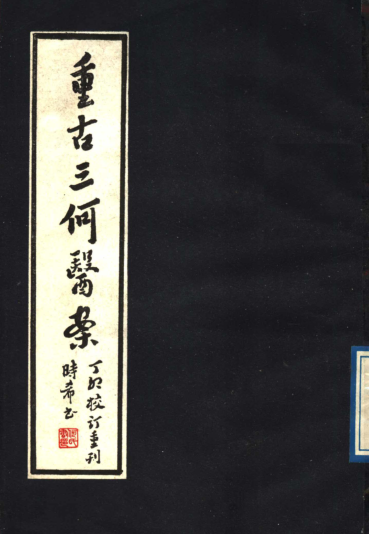 重古三何醫案
丁卯校訂重刊
時希書